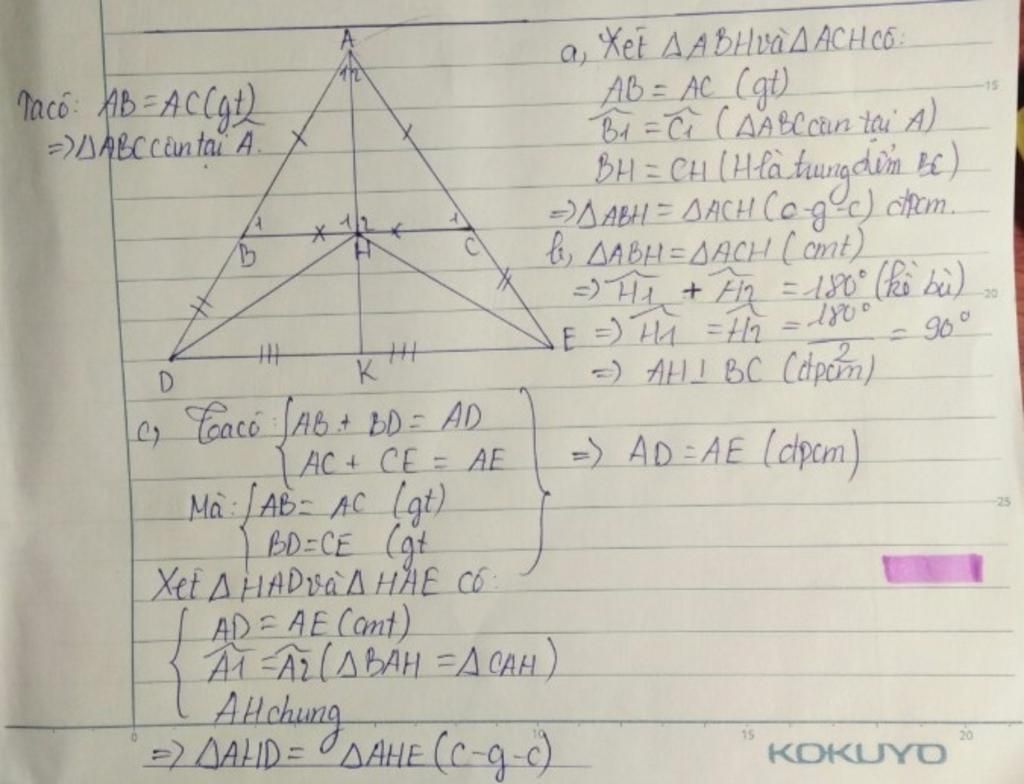 Ta có: AB = AC (gt)
=> ΔABC cân tại A.
A
12
B
1
12
H
1
C
D
K
E
a, Xét ΔABH và ΔACH có:
AB = AC (gt)
B̂1 = Ĉ1 (ΔABC cân tại A)
BH = CH (H là trung điểm BC)
=> ΔABH = ΔACH (c-g-c) đpcm.
b, ΔABH = ΔACH (cmt)
=> Ĥ1 + Ĥ2 = 180° (kề bù)
=> Ĥ1 = Ĥ2 = 180°/2 = 90°
=> AH ⊥ BC (đpcm)
c, Ta có: { AB + BD = AD
AC + CE = AE
Mà: { AB = AC (gt)
BD = CE (gt
} => AD = AE (đpcm)
Xét ΔHAD và ΔHAE có:
{ AD = AE (cmt)
Â1 = Â2 (ΔBAH = ΔCAH)
AH chung
=> ΔAHD = ΔAHE (c-g-c)
15
20
25
0
10
15
20
KOKUYO